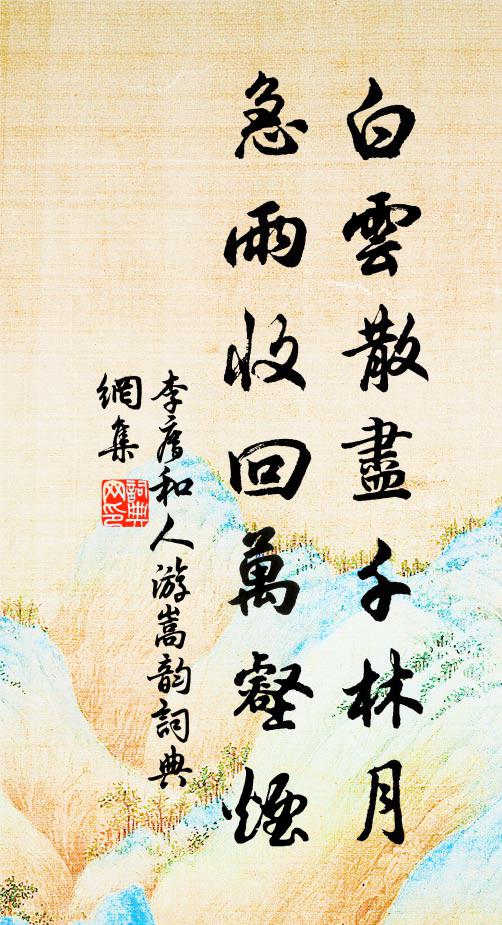 白雲散盡千林月
急雨收回萬壑煙
李廌和人游嵩韵詞典
網集
詞典
網印